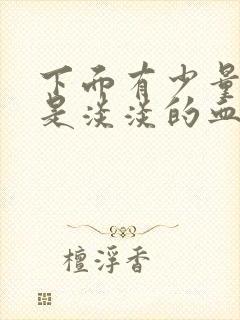 下面有少量
是淡淡的血
檀浮香